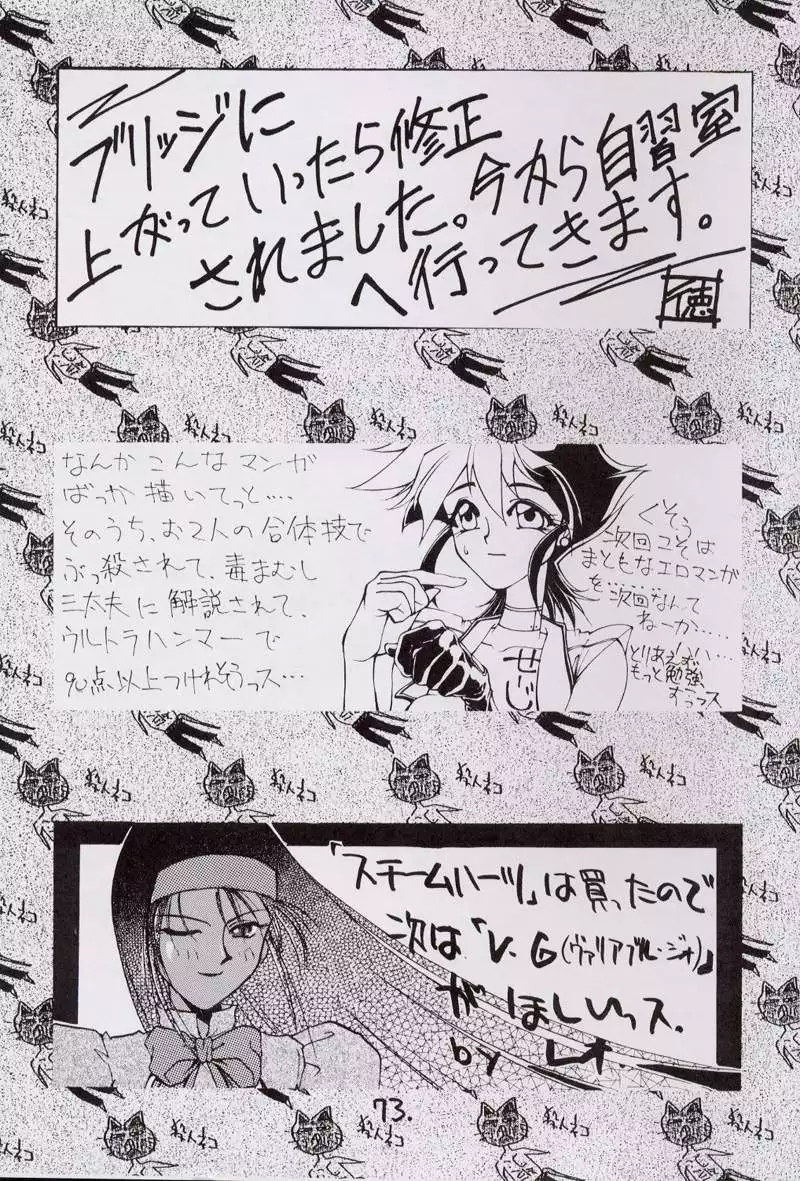 ブリッジに
上がっていったら修正
されました。今から自習室
へ行ってきます。
徳
なんかこんなマンガ
ばっか描いてっと‥‥
そのうち、お2人の合体技で
ぶっ殺されて、毒まむし
三太夫に解説されて、
ウルトラハンマーで
90点以上つけれそうっス…
くそう
次回こそは
まともなエロマンガ
を……次回なんて
ねーか……
とりあえず
もっと勉強
するっス
せーじ
「スチームハーツ」は買ったので
次は「V.G(ヴァリアブル・ジオ)」
がほしいっス.
by レオ.
73.
殺人ネコ